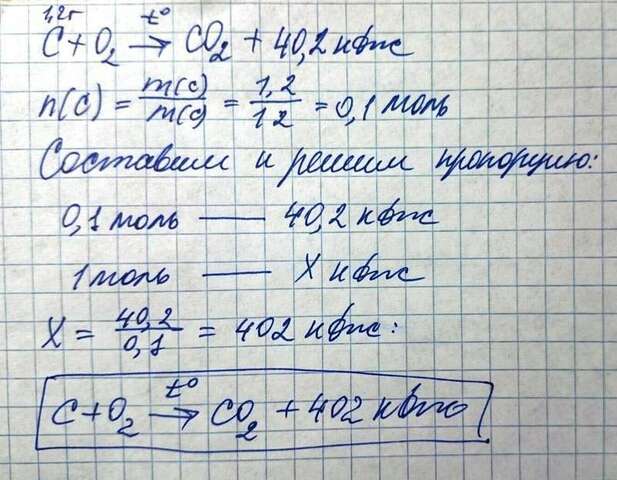 1,2г
C + O₂ →t° CO₂ + 40,2 кДж
n(C) = m(C)/m(C) = 1,2/12 = 0,1 моль
Составим и решим пропорцию:
0,1 моль — 40,2 кДж
1 моль — X кДж
X = 40,2/0,1 = 402 кДж:
C + O₂ →t° CO₂ + 402 кДж